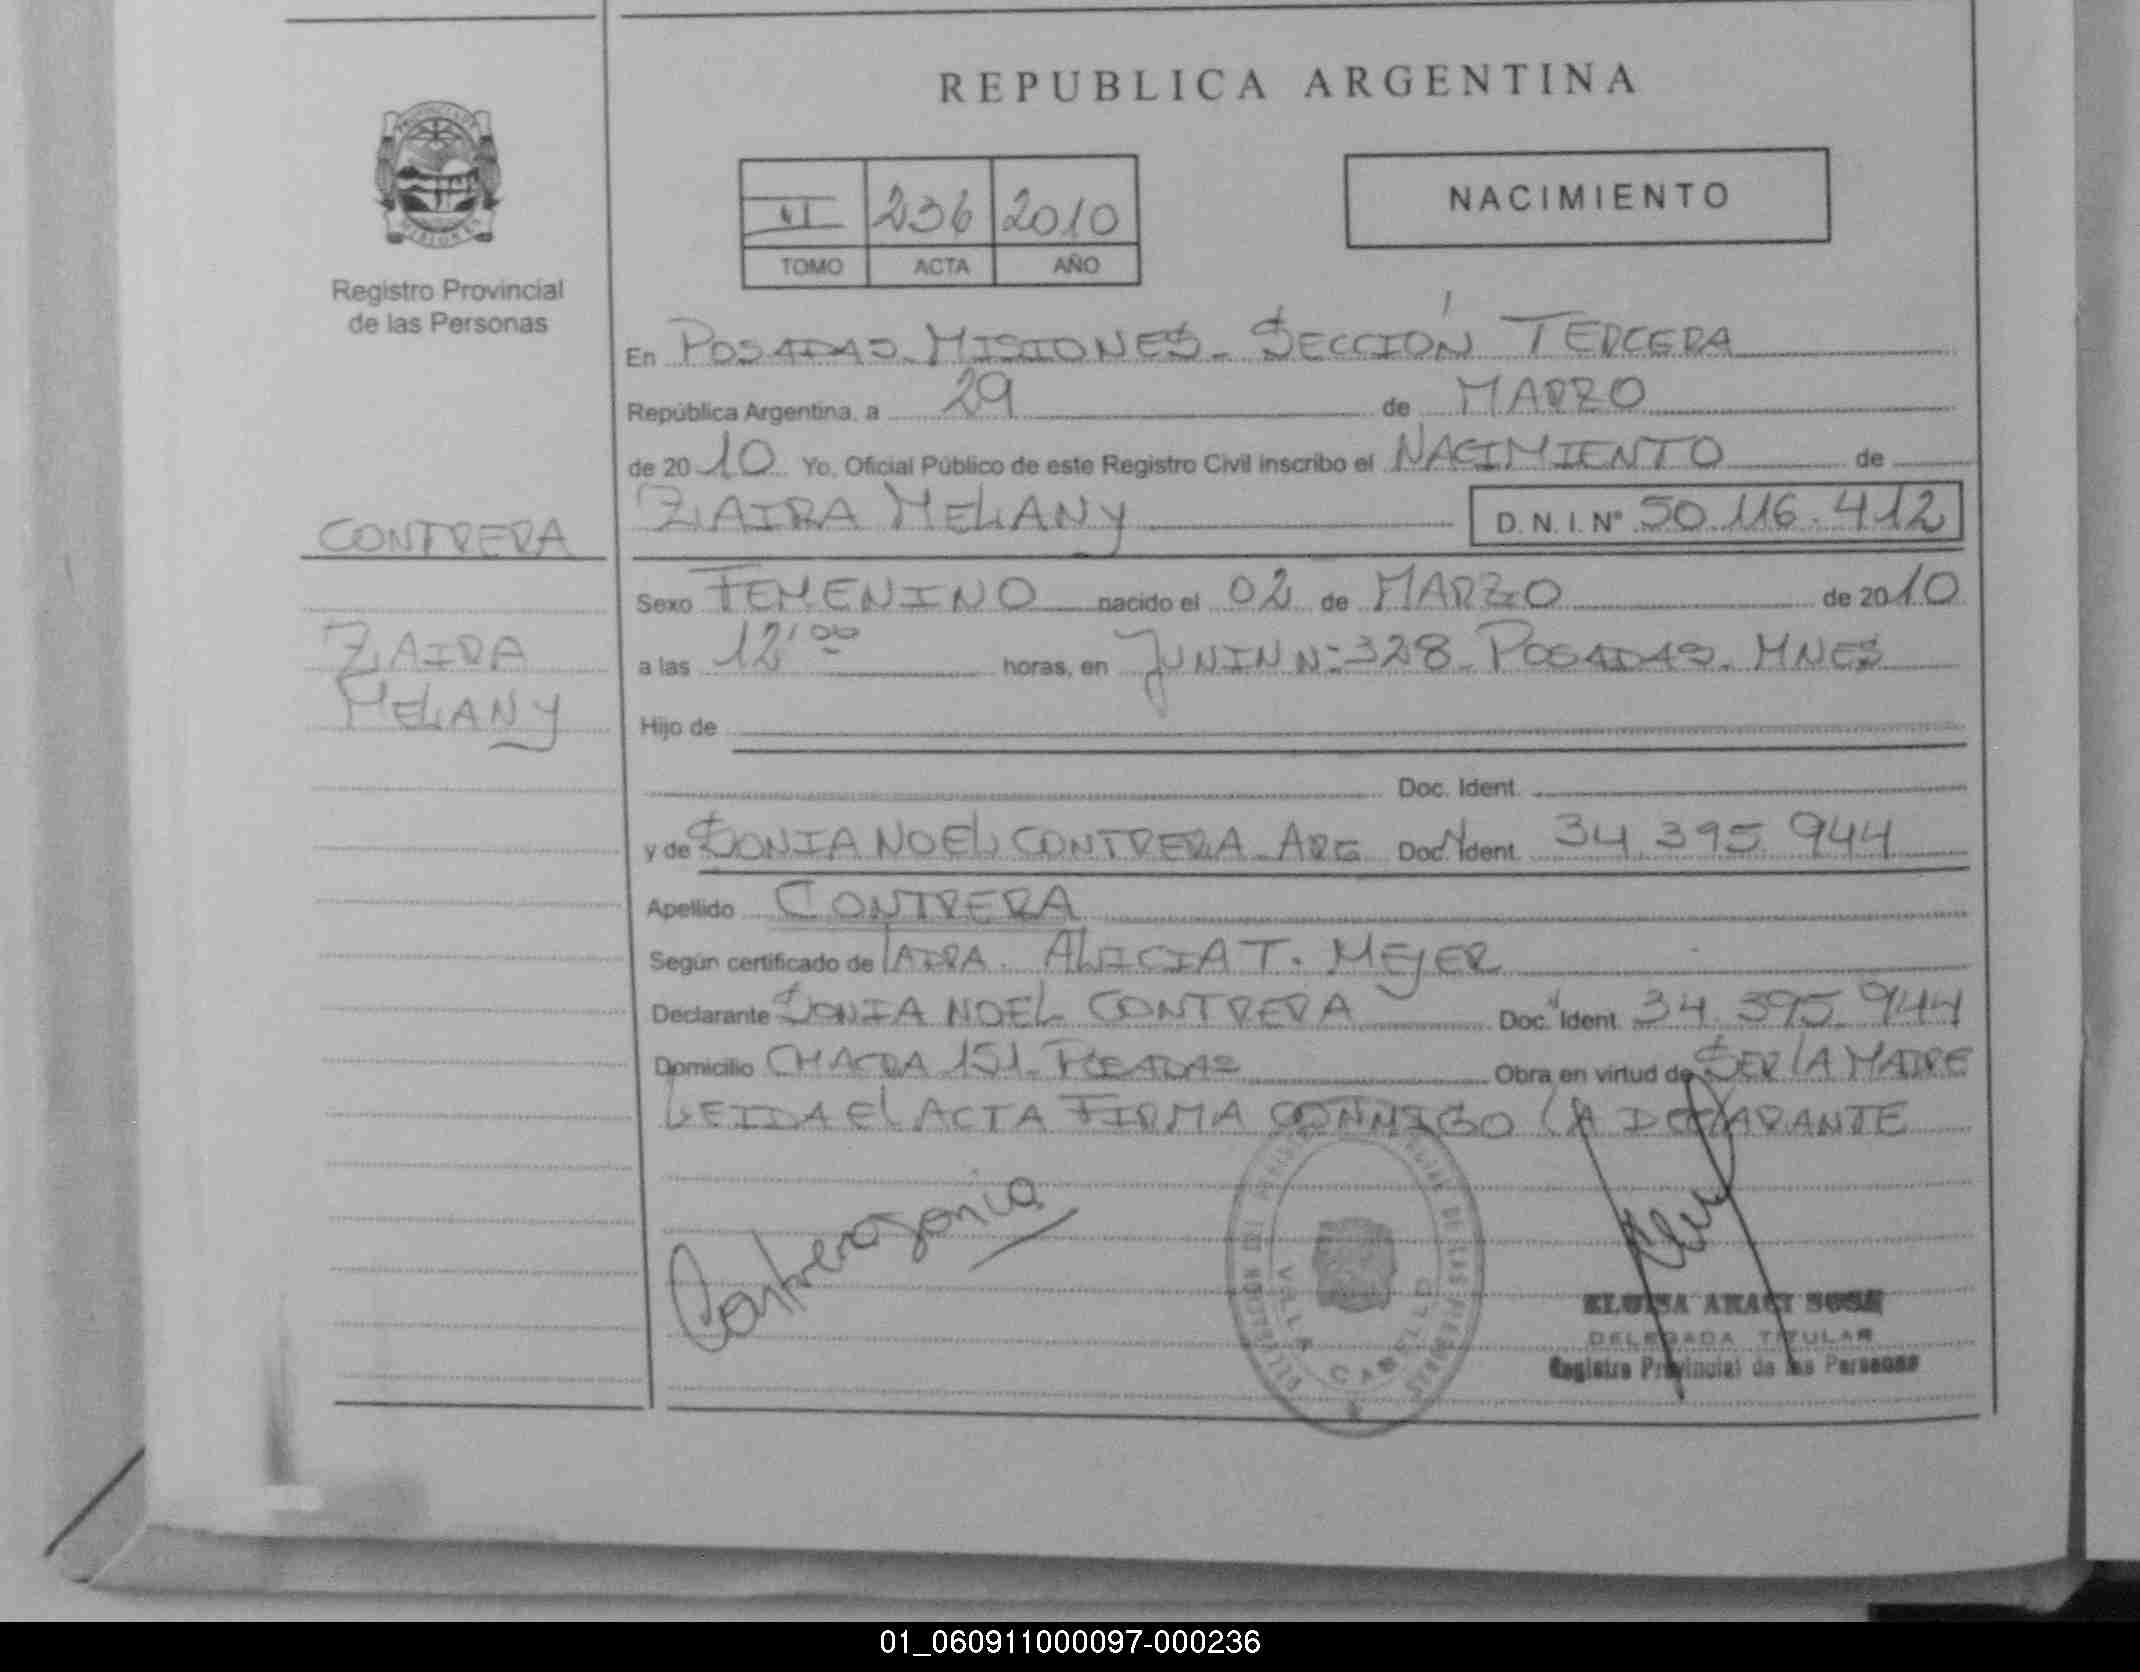 REPUBLICA ARGENTINA
Registro Provincial
de las Personas
II 236 2010
TOMO ACTA AÑO
NACIMIENTO
En POSADAS. MISIONES. SECCIÓN TERCERA
República Argentina, a 29 de MARZO
de 20 10 Yo, Oficial Público de este Registro Civil inscribo el NACIMIENTO de
ZAIRA MELANY D. N. I. Nº 50.116.412
CONTRERA
ZAIRA
MELANY
Sexo FEMENINO nacido el 02 de MARZO de 20 10
a las 12'00 horas, en JUNIN Nº 328. POSADAS. MNES
Hijo de
Doc. Ident.
y de SONIA NOEL CONTRERA ARG Doc. Ident. 34.395.944
Apellido CONTRERA
Según certificado de LA DRA. ALICIA T. MEJER
Declarante SONIA NOEL CONTRERA Doc. Ident. 34.395.944
Domicilio CHACRA 151. POSADAS Obra en virtud de SER LA MADRE
LEIDA EL ACTA FIRMA CONMIGO LA DECLARANTE
Contrera Sonia
VILLA CABELLO
ELOISA ARACY SOSA
DELEGADA TITULAR
Registro Provincial de las Personas
01_060911000097-000236